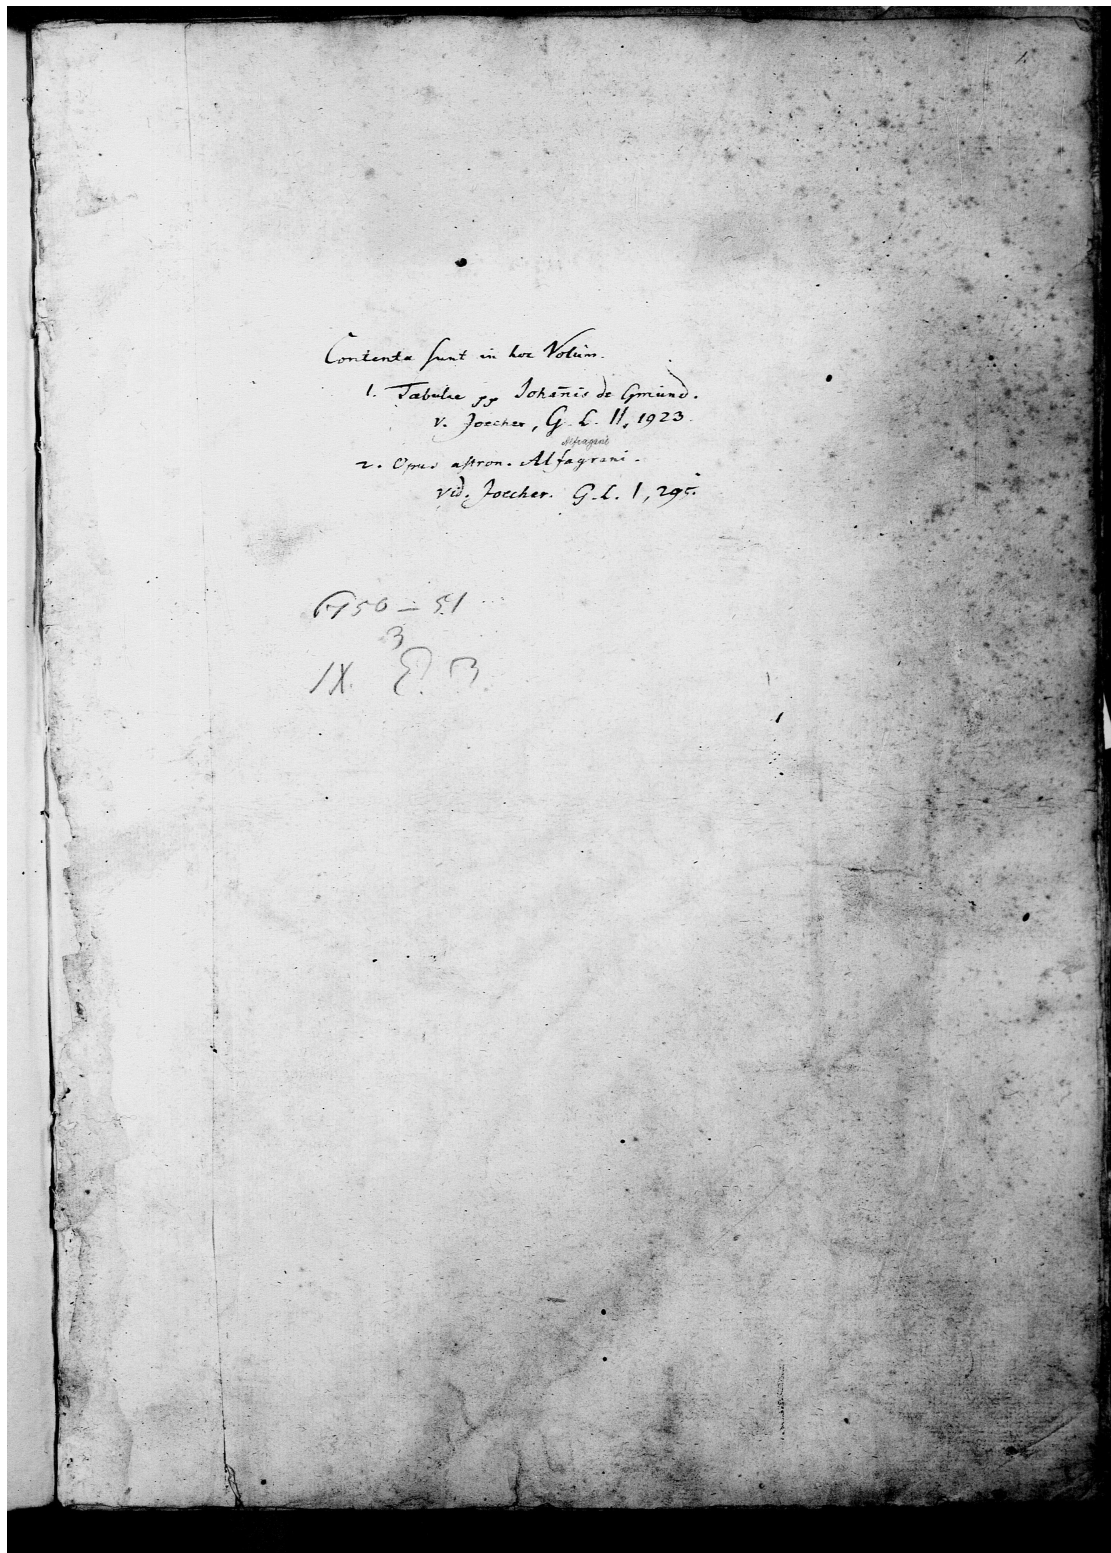 1
Contenta sunt in hoc Volum.
1. Tabulae pp Johañis de Gmund.
v. Joecher, G. L. II, 1923.
Alfragani
2. Opus astron. Alfagrani.
vid. Joecher. G. L. I, 295.
50-51
3
IX.